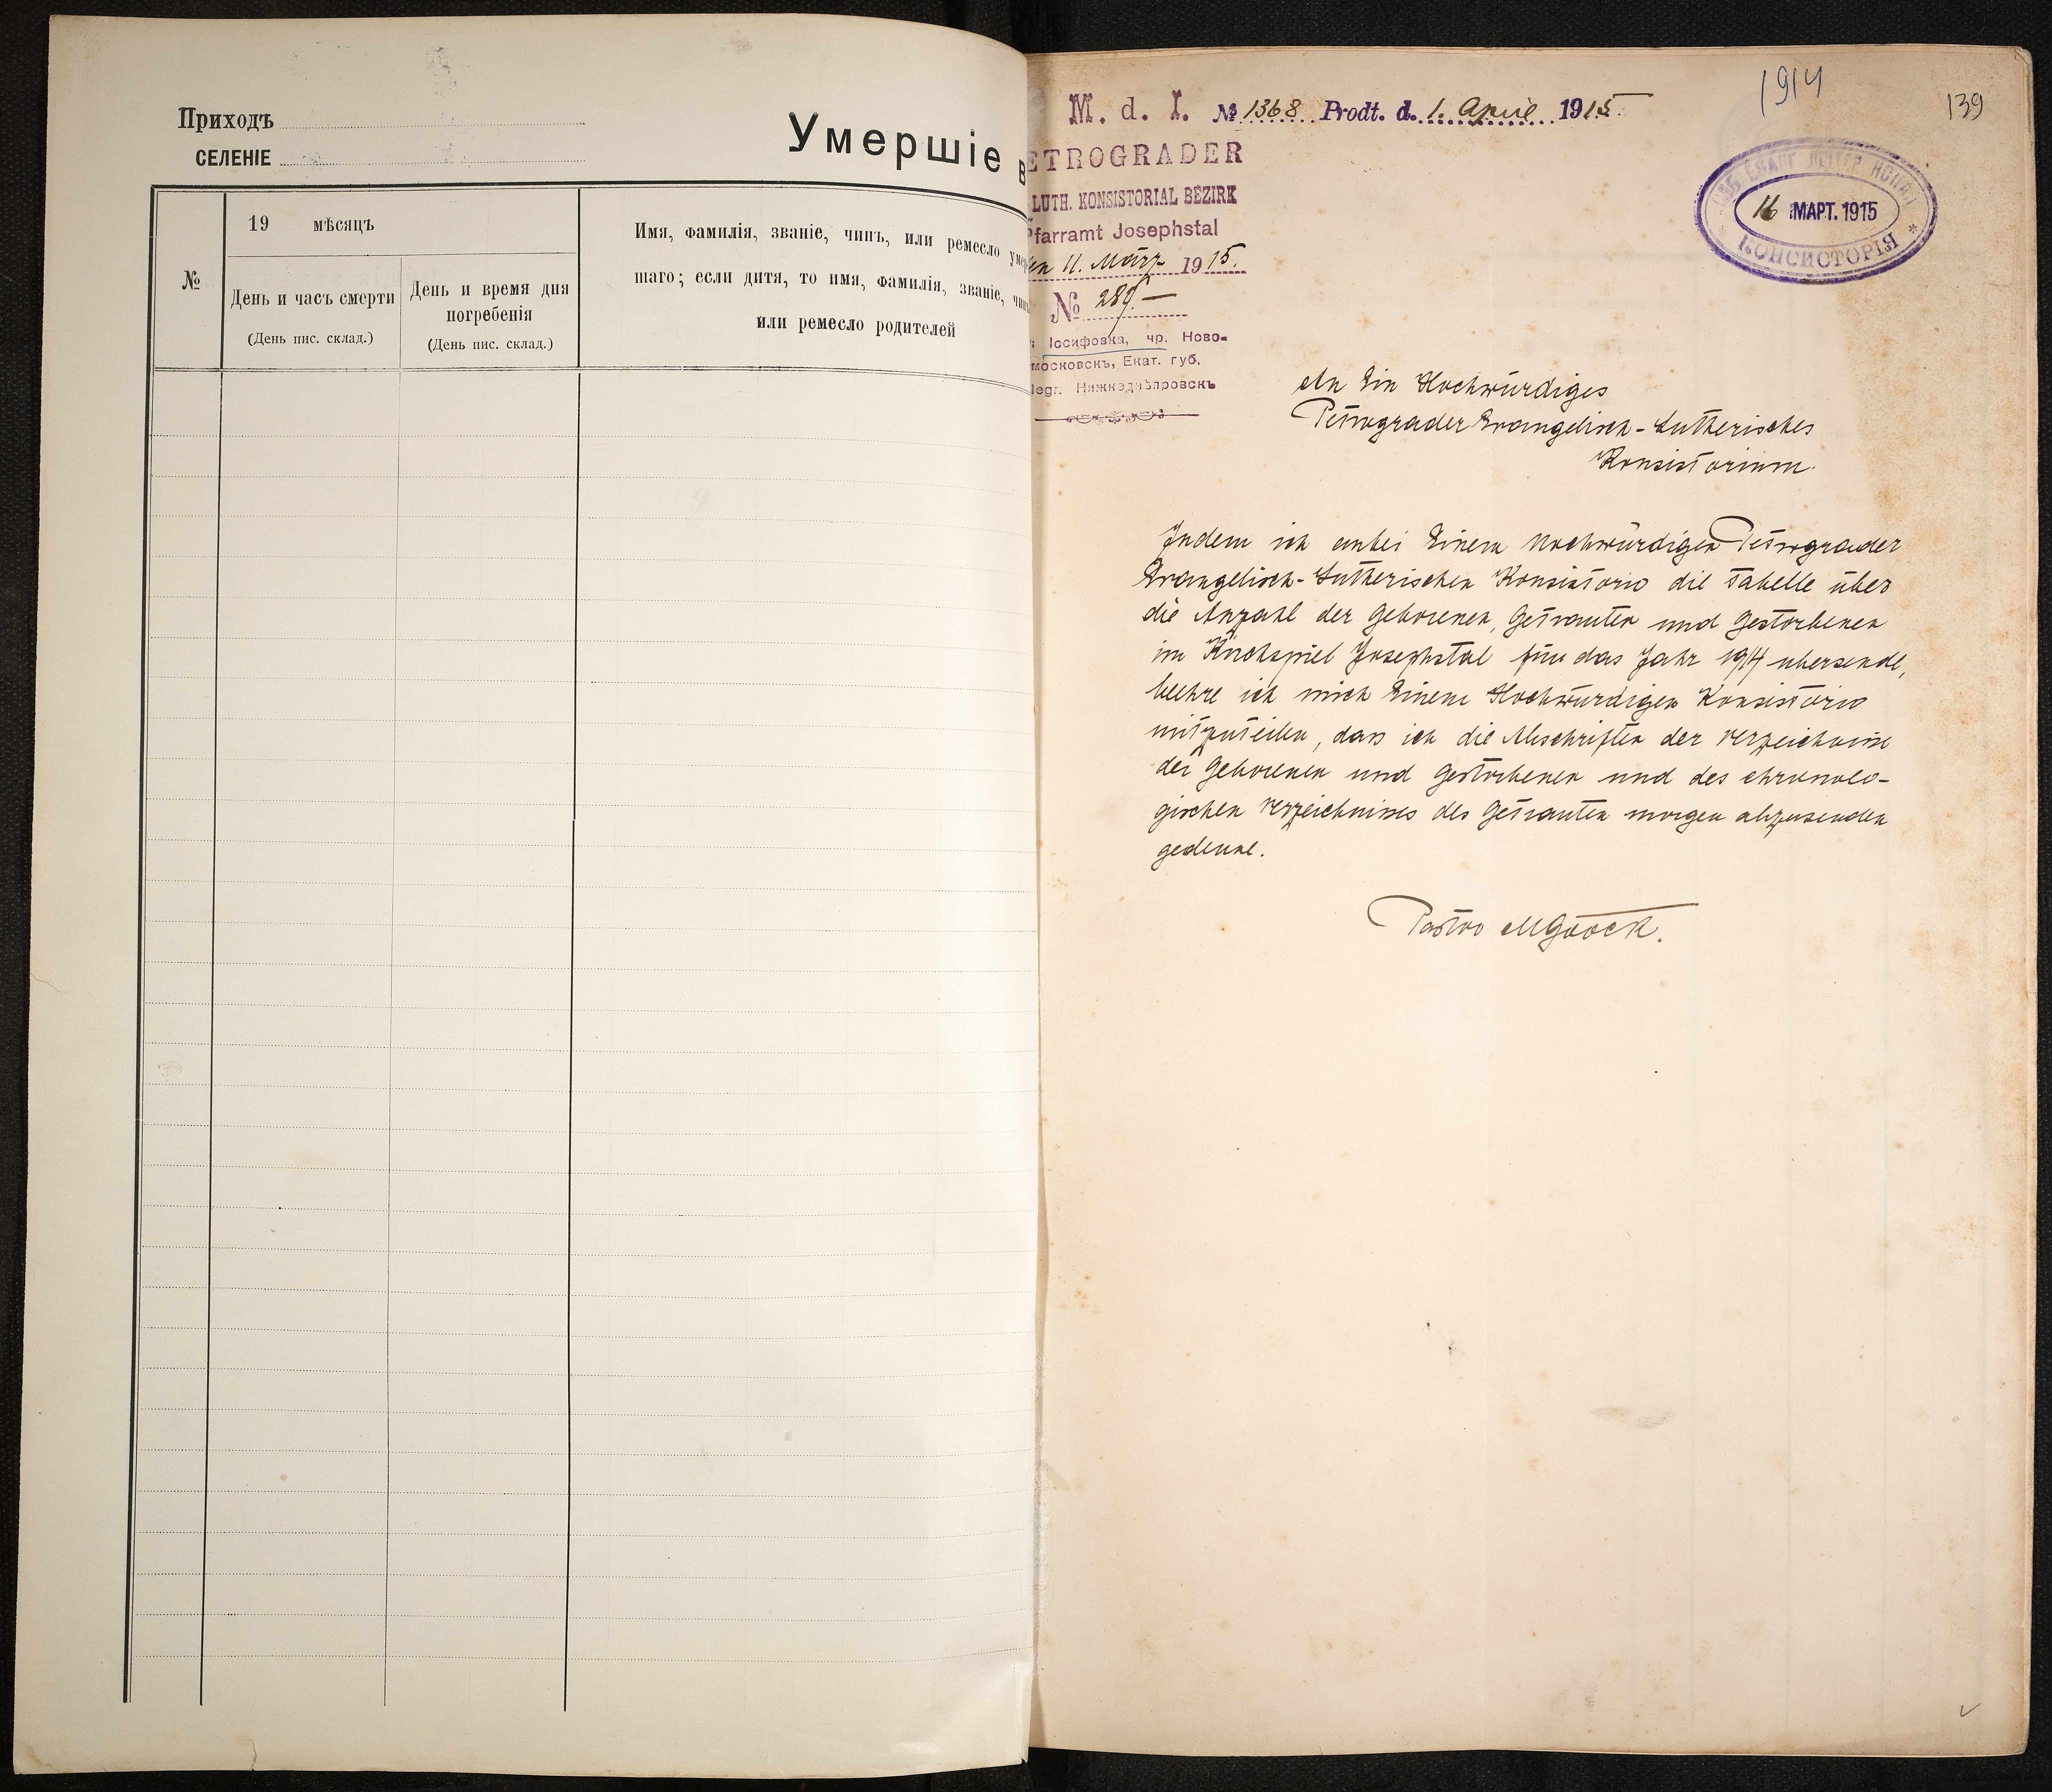 Приходъ
СЕЛЕНІЕ
Умершіе в
№
19 мѣсяцъ
День и часъ смерти
(День пис. склад.)
День и время дня
погребенія
(День пис. склад.)
Имя, фамилія, званіе, чинъ, или ремесло умер
шаго; если дитя, то имя, фамилія, званіе, чинъ
или ремесло родителей
M. d. I. № 1368 Prodt. d. 1. April 1915.
1914
139
ETROGRADER
LUTH. KONSISTORIAL BEZIRK
Pfarramt Josephstal
den 11. März 1915.
№ 289.—
Іосифовка, чр. Ново-
московскъ, Екат. губ.
Telegr. Нижнеднѣпровскъ
16 МАРТ. 1915
КОНСИСТОРІЯ
An Ein Hochwürdiges
Petrograder Evangelisch-Lutherisches
Konsistorium.
Indem ich anbei Einem Hochwürdigen Petrograder
Evangelisch-Lutherischen Konsistorio die Tabelle über
die Anzahl der Geborenen, Getrauten und Gestorbenen
im Kirchspiel Josephstal für das Jahr 1914 übersende,
beehre ich mich Einem Hochwürdigen Konsistorio
mitzuteilen, dass ich die Abschriften der Verzeichnisse
der Geborenen und Gestorbenen und des chronolo-
gischen Verzeichnisses der Getrauten morgen abzusenden
gedenke.
Pastor